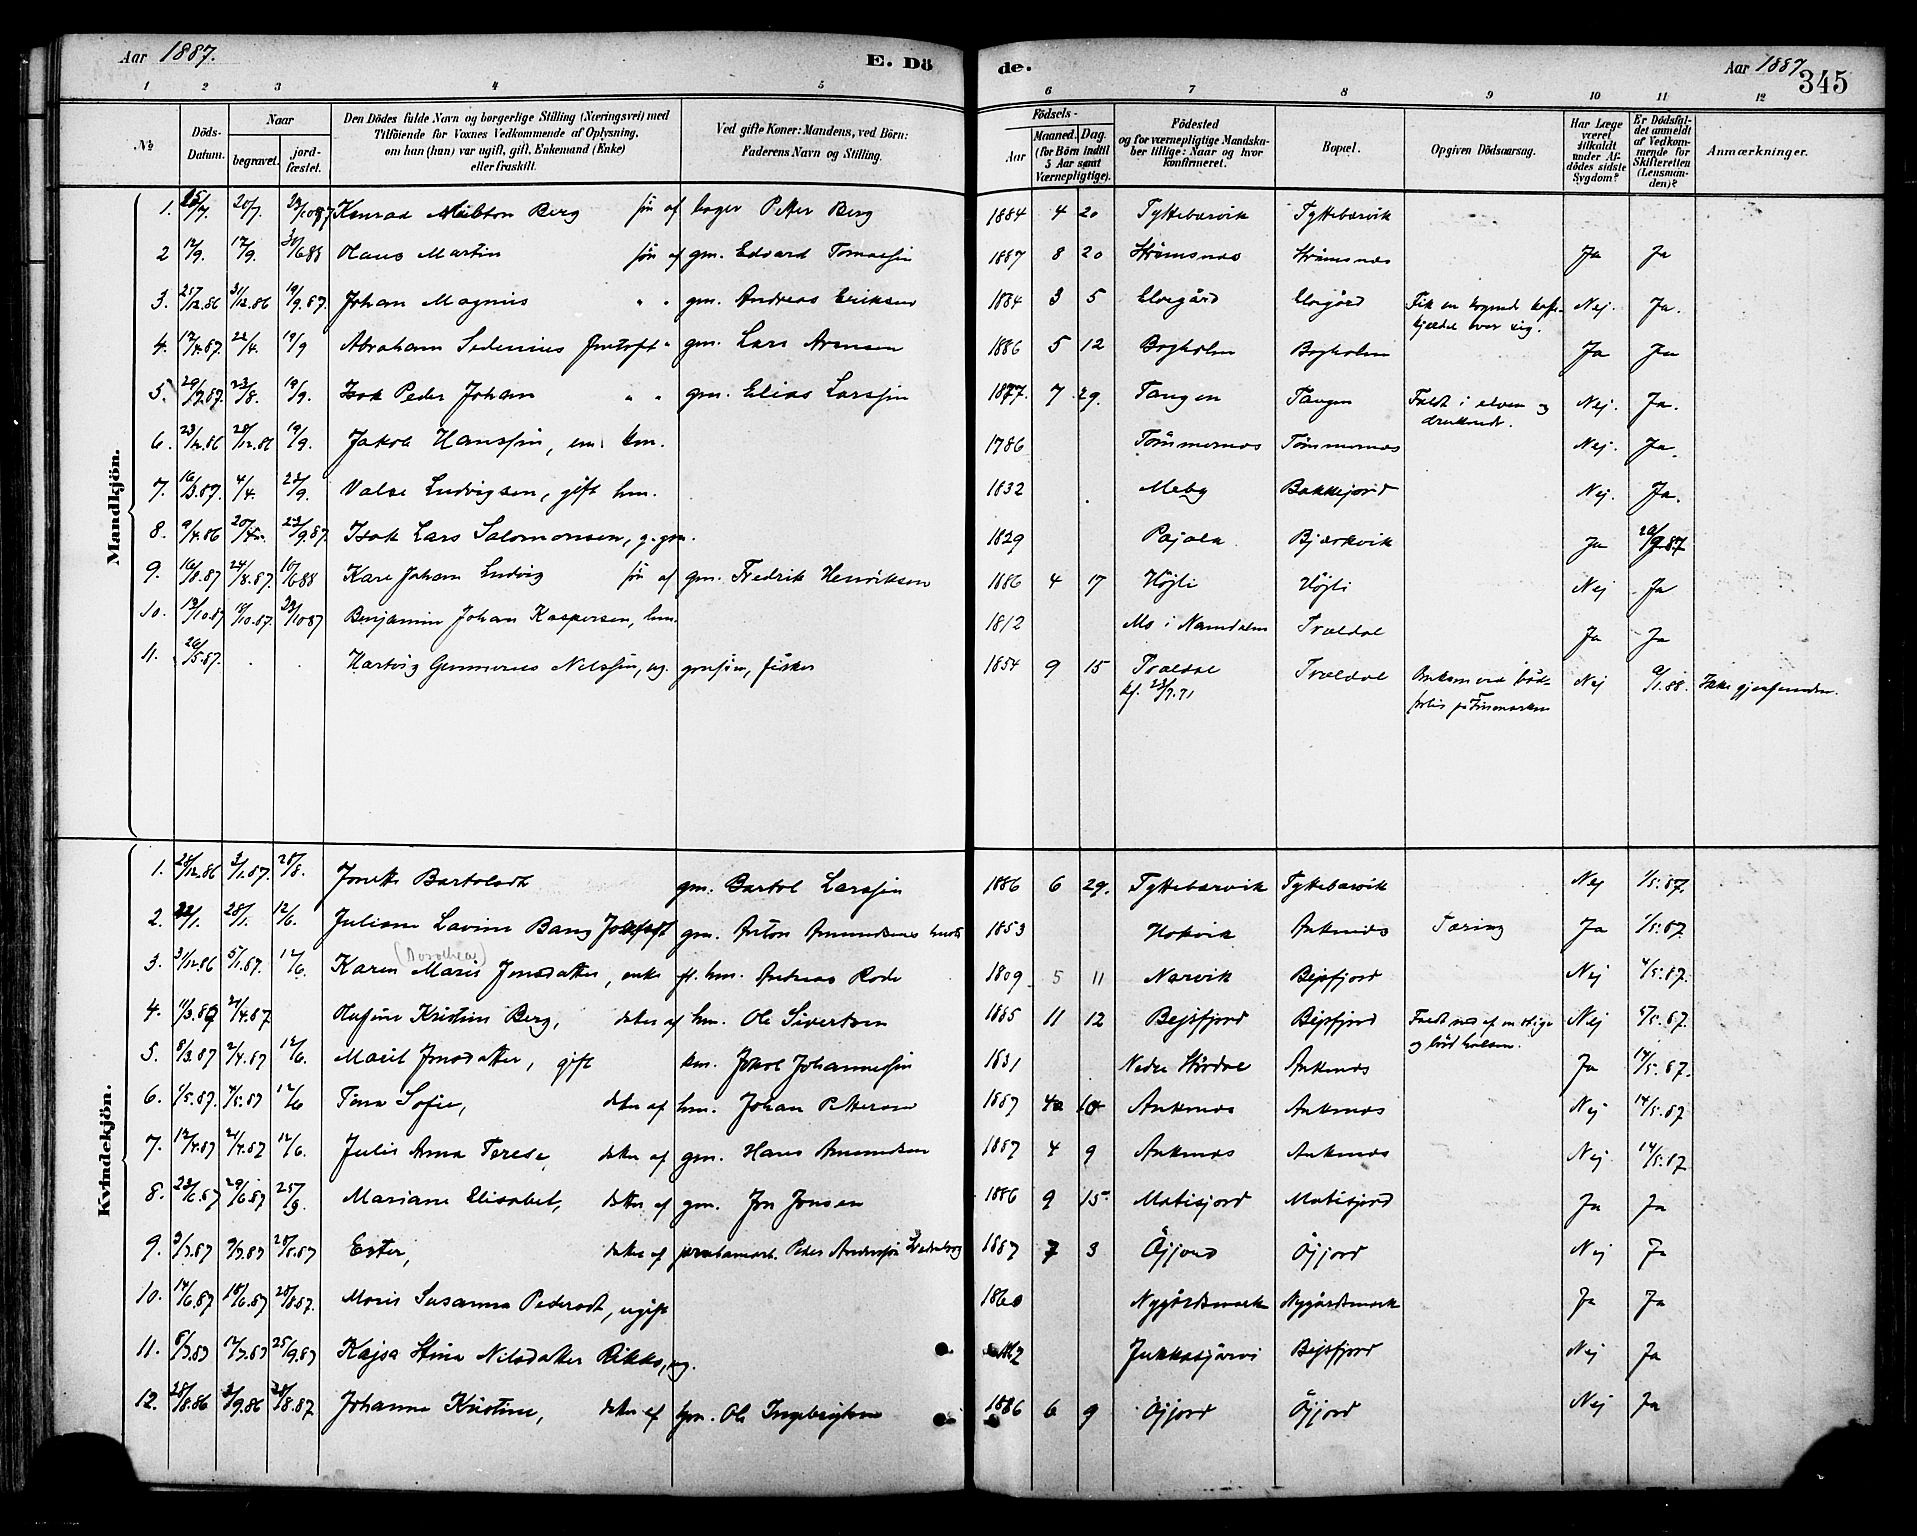 Aar 1887.
E. Dö
de.
Aar 1887
345
1 2 3 4 5 6 7 8 9 10 11 12
№
Döds-Datum.
Naar
begravet.
jordfæstet.
Den Dödes fulde Navn og borgerlige Stilling (Næringsvei) med
Tilföiende for Voxnes Vedkommende af Oplysning,
om han (hun) var ugift, gift, Enkemand (Enke)
eller fraskilt.
Ved gifte Koner: Mandens, ved Börn:
Faderens Navn og Stilling.
Födsels-
Aar
Maaned. Dag.
(for Börn indtil
5 Aar samt
Værnepligtige).
Födested
og for værnepligtige Mandskaber tillige: Naar og hvor
konfirmeret.
Bopæl.
Opgiven Dödsaarsag.
Har Læge
været
tilkaldt
under Afdödes sidste
Sygdom?
Er Dödsfaldet anmeldt
af Vedkommende for
Skifteretten
(Lensmanden)?
Anmærkninger.
Mandkjön.
1. 20/7. Konrad Berg sön af Petter Berg 1884 4 20 Tyttebærvik Tyttebærvik
2 12/9. 17/9. 30/6 88 Hans Martin sön af gm. Edvard 1887 8 20 Strømsnes Strømsnes Ja Ja
3. 25/12.86 31/12.86 19/9.87. Johan Magnus " " gm. Andreas Eriksen 1884 3 5 Elvegård Elvegård Nej. Ja.
4. 17/4.87. 22/4. 19/9 Abraham Sedenius " gm. Lars Arnesen 1886 5 12 Bogholm Bogholm Ja Ja
5. 29/7.87. 23/8. 19/9. Isak Peder Johan " " gm. Elias Larssön 1877. 7 29. Tangen Tangen Faldt i elven og druknede. Nej. Ja.
6. 23/12.86 28/12.86 19/9. Jakob Hanssön, em. km. 1786 Tømmernes Tømmernes Nej. Ja.
7. 16/3.87. 4/4. 22/9. Ludvigsen, gift hm. 1832 Meby Bakkejord Nej. Ja.
8. 9/4.86 22/9.87. Isak Lars Salomonsen, g. gm. 1829 Pajala Bjerkvik Ja
9. 16/8.87 24/8.87. 10/6 88 Kare Johan Ludvig sön af gm. Fredrik Henriksen 1886 4 17 Højli Højli Nej Ja
10. 13/10.87 18/10.87. 23/10 87 Benjamin Johan Kaspersen, hm. 1812 Mo i Namdalen Trældal Ja Ja
11. 26/5.87. Hartvig Gunnerius Nilssön, ug. fisker 1854 9 15 Trældal Trældal Nej Ikke gjenfunden.
Kvindekjön.
1. 28/12.86 3/1.87. 28/8. Jonette Bartolsdt gm. Bartol Larssön 1886 6 29. Tyttebærvik Tyttebærvik Nej 1/5.87.
2. 22/1. 28/1. 12/6. Juliane Lavine Bang gm. Anton Amundsens 1853 Hokvik Ankenes Tæring Ja 1/5.87.
3. 31/12.86 5/1.87. 12/6. Karen Marie (Dorothea) Jonsdatter, enke ft. hm. Andreas Rode 1809 5 11 Narvik Bejsfjord Nej 4/5.87.
4. 11/3.87 2/4.87 Olufine Kristine Berg, datter af hm. Ole Sivertsen 1885 11 12 Bejsfjord Bejsfjord Nej
5. 8/3.87 2/4.87 12/6. Marit Jonsdatter, gift km. Jakob Johannessön 1831 Nedre Stördal Ankenes Ja 14/5.87.
6. 1/5.87. 7/5.87 12/6 Tina Sofie, datter af hm. Johan Pettersen 1887 Ankenes Ankenes Nej 14/5.87
7. 12/4.87 21/4.87 12/6. Julie Anna Terese, datter af gm. Hans Amundsen 1887 4 9 Ankenes Ankenes Nej. 14/5.87
8. 22/6.87 29/6.87 25/9 Mariane Elisabet, datter af gm. Jon Jonsen 1886 9 15. Matisjord Matisjord Ja Ja
9. 3/7.87 9/7.87 28/8.87 Ester, datter af Peter Anderssön 1887 7 3 Øjjord Øjjord Nej Ja
10. 14/6.87 18/6.87 28/8 87. Maria Susanna Pedersdt, ugift 1860 Nygårdsmark Nygårdsmark Ja Ja
11. 6/7.87 12/7.87 25/9.87 Kajsa Stina Nilsdatter Rikko, ug. Jukkasjärvi Bejsfjord Nej Ja
12. 28/8.86 3/9.86 28/8.87 Johanna Kristine, datter af Ole Ingebrigtsen 1886 6 9 Øjjord Øjjord Nej Ja